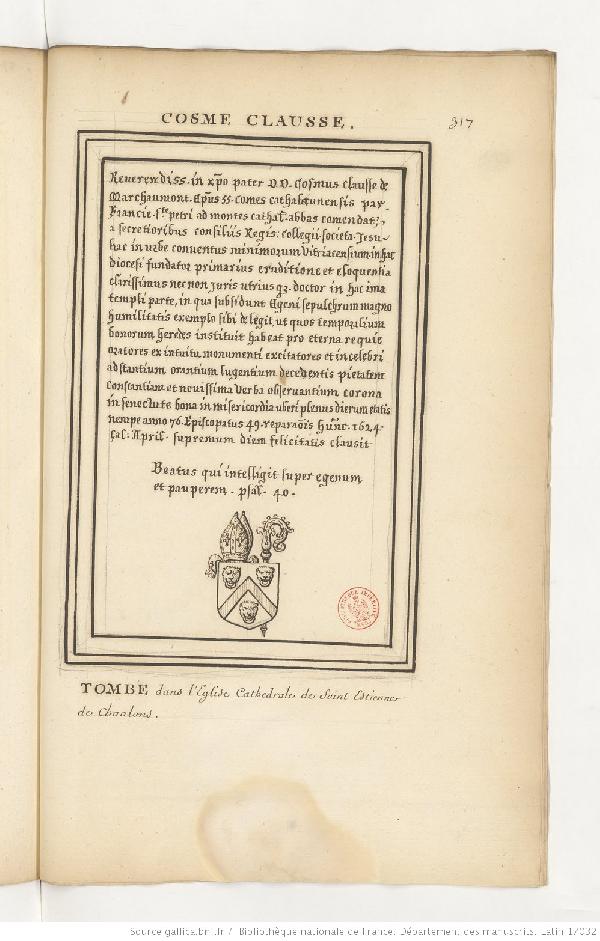 COSME CLAUSSE.
317
Reverendiss. in xpo pater D.D. Cosmus clausse de
Marchaumont. Epus 55. comes cathalaunensis par
Francie. Sti petri ad montes cathal. abbas comendat.
a secretioribus consiliis Regis: collegii societa. Jesu
huc in urbe conventus minimorum Vitriacensium in hac
diocesi fundator primarius eruditione et eloquentia
clarissimus nec non juris utriusq3. doctor in hac ima
templi parte, in qua subsidunt Egeni sepulchrum magno
humilitatis exemplo sibi delegit, ut quos temporalium
bonorum heredes instituit habeat pro eterna requie
oratores ex intuitu monumenti excitatores et in celebri
adstantium orantium lugentium decedentis pietatem
constantiam et novissima verba observantium corona
in senectute bona in misericordia uberi plenus dierum etatis
nempe anno 76. Episcopatus 49. reparaõis 1624.
cal. April. supremum diem felicitatis clausit
Beatus qui intelligit super egenum
et pauperem. psal. 40.
TOMBE dans l'Eglise Cathedrale de Saint Estienne
de Chaalons.
Source gallica.bnf.fr / Bibliothèque nationale de France. Département des manuscrits. Latin 17032